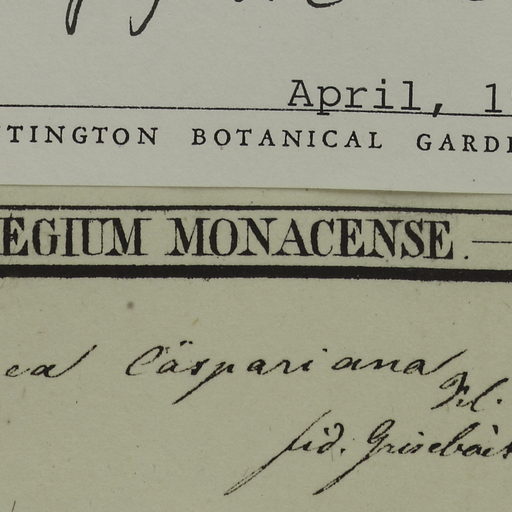 April, 1
TINGTON BOTANICAL GARD
EGIUM MONACENSE.
ea Cäspariana
fid. Grisebach